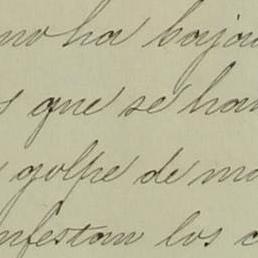 no ha baja
que se han
golpe de ma
nfestan los c